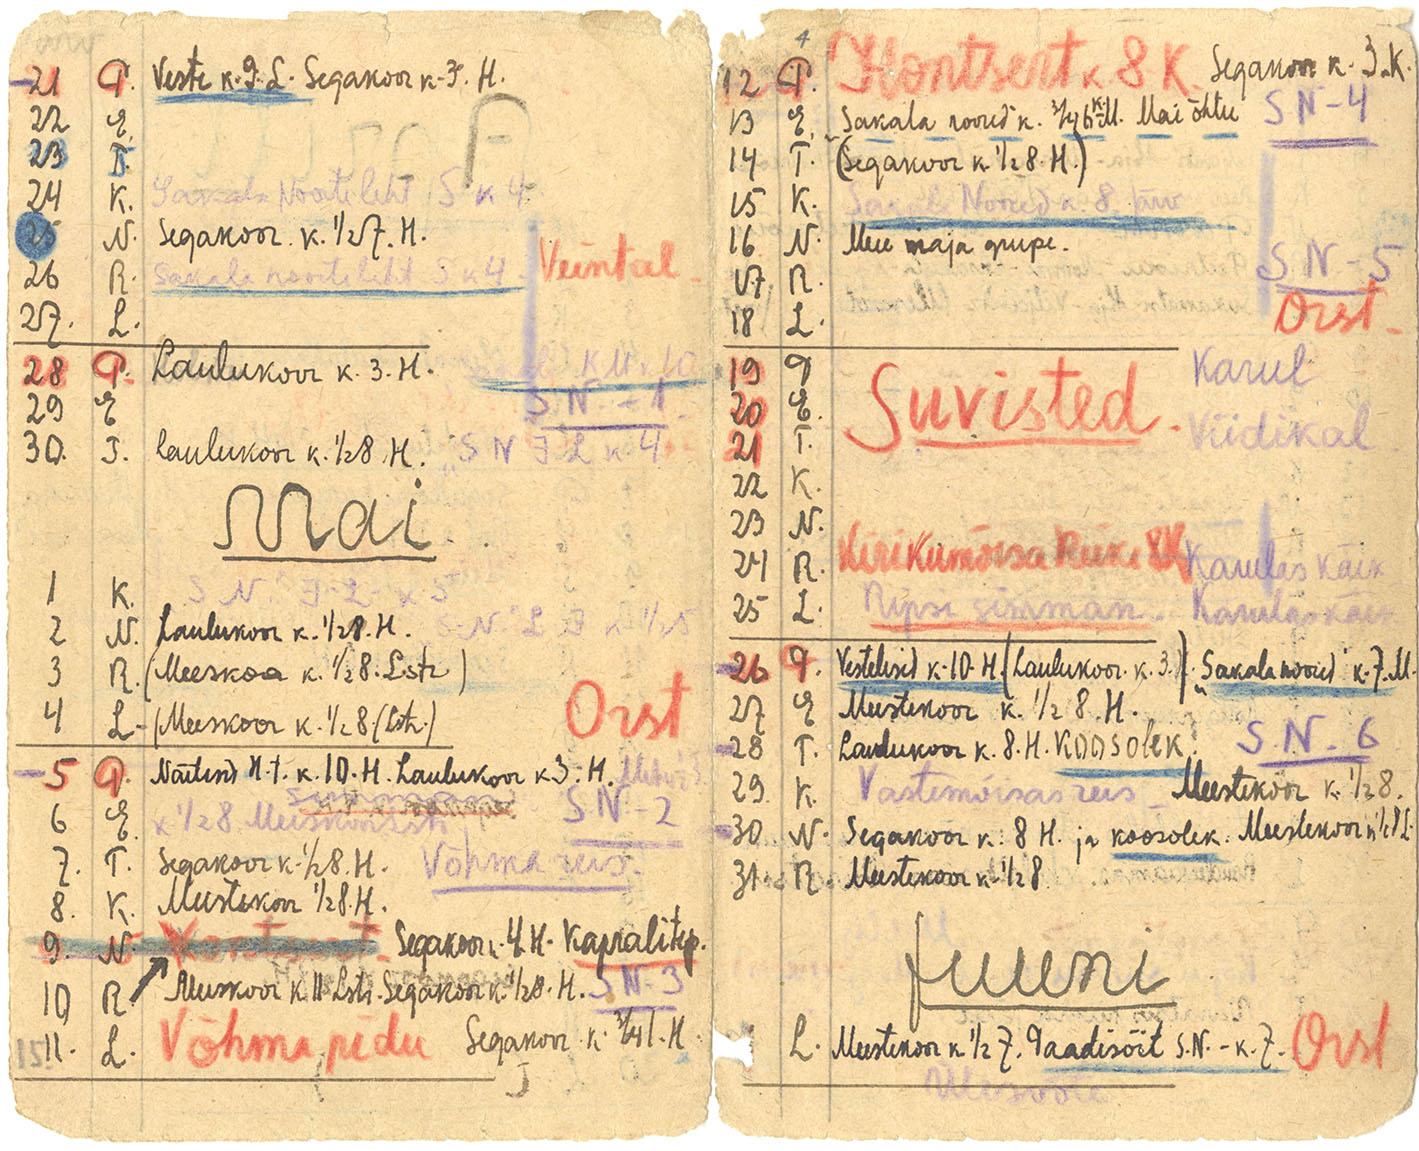 21 P. Veste k. 9. L. Segakoor k. 3. H.
22 E.
23 T.
24 K. Sakala Nooteleht 5 k 4
25 N. Segakoor k. 1/2 7. H.
26 R. Sakala nooteleht 5 k 4 Veintal
27. L.
28 P. Laulukoor k. 3. H.
29 E S N. - 1.
30. T. Laulukoor k. 1/2 8. H. „S N J L k 4
Mai
1 K. S N. J - L - k 5
2 N. Laulukoor k. 1/2 8. H. S. N. L J k 1/2 5
3 R. (Meeskoor k. 1/2 8. Lstr)
4 L. (Meeskoor k. 1/2 8 (Lstr.) Orst
5 P. k. 10. H. Laulukoor k 3. H.
6 E. k 1/2 8 Meeskoor Lstr. S N - 2
7. T. Segakoor k. 1/2 8. H. Võhma reis.
8. K. Meestekoor 1/2 8. H.
9. N. Kontsert Segakoor k. 4. H. Kapralitep.
10 R. Meeskoor k 11 Lstr. Segakoor k. 1/2 8. H. S N - 3
11. L. Võhma, pidu Segakoor k. 3/4 1. H.
4
12 P. Kontsert k 8 K. Segakoor k. 3. K.
13 E. Sakala noored k. 3/4 6 k M. Mai õhtu S N - 4
14 T. (Segakoor k. 1/2 8. H.)
15 K. Sakala Noored k. 8. päev
16 N. Meie maja grupe.
17. R. S N - 5
18 L. Orst -
19 P Karul
20 E. Suvisted.
21 T. Viidikal
22 K.
23 N.
24 R. Kirikumõisa 8 K Karulas käik
25 L. Ripsi simman. Karulas käik
26 P. Vestelisid k. 10. H. (Laulukoor k. 3.). „Sakala noored" k. 7. M.
27 E Meestekoor k. 1/2 8. H.
28 T. Laulukoor k. 8. H. KOOSOLEK. S N - 6
29. K. Vastemõisas reis - Meestekoor k. 1/2 8.
30 N. Segakoor k. 8 H. ja koosolek. Meestekoor k 1/2 8 L.
31. R Meestekoor k. 1/2 8.
Juuni
L. Meestekoor k. 1/2 7. Paadisõit S. N. - k. 7. Orst
Ülesvõte